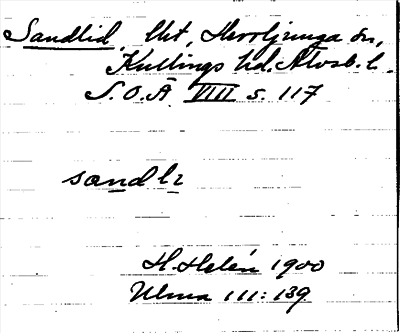 Sandlid, lht, Herrljunga sn,
Kullings hd. Älvsb. l.
S.O.Ä VIII s. 117
sandlı
H. Helén 1900
Ulma 111:139